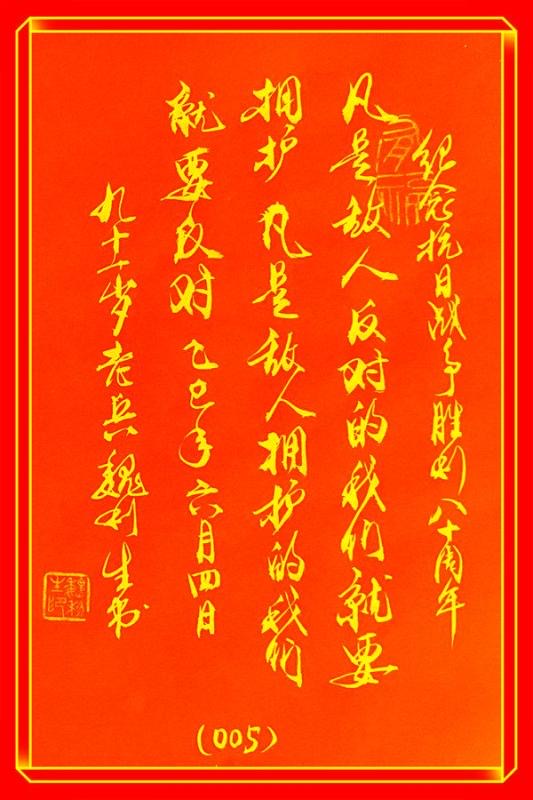 纪念抗日战争胜利八十周年
凡是敌人反对的我们就要
拥护凡是敌人拥护的我们
就要反对乙巳年六月四日
九十一岁老兵魏利生书
魏利生印
(005)